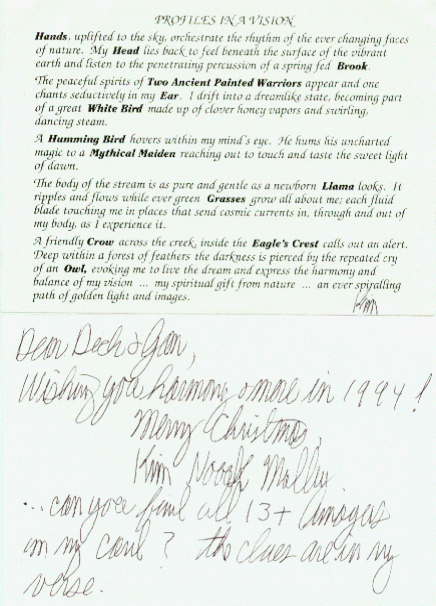 PROFILES IN A VISION
Hands, uplifted to the sky, orchestrate the rhythm of the ever changing faces
of nature. My Head lies back to feel beneath the surface of the vibrant
earth and listen to the penetrating percussion of a spring fed Brook.
The peaceful spirits of Two Ancient Painted Warriors appear and one
chants seductively in my Ear. I drift into a dreamlike state, becoming part
of a great White Bird made up of clover honey vapors and swirling,
dancing steam.
A Humming Bird hovers within my mind's eye. He hums his uncharted
magic to a Mythical Maiden reaching out to touch and taste the sweet light
of dawn.
The body of the stream is as pure and gentle as a newborn Llama looks. It
ripples and flows while ever green Grasses grow all about me; each fluid
blade touching me in places that send cosmic currents in, through and out of
my body, as I experience it.
A friendly Crow across the creek, inside the Eagle's Crest calls out an alert.
Deep within a forest of feathers the darkness is pierced by the repeated cry
of an Owl, evoking me to live the dream and express the harmony and
balance of my vision ... my spiritual gift from nature ... an ever spiralling
path of golden light and images.
Kim
Dear &
Wishing you harmony & more in 1994!
Merry Christmas,
Kim
...can you find all 13+ images
in my card? the clues are in my
verse.